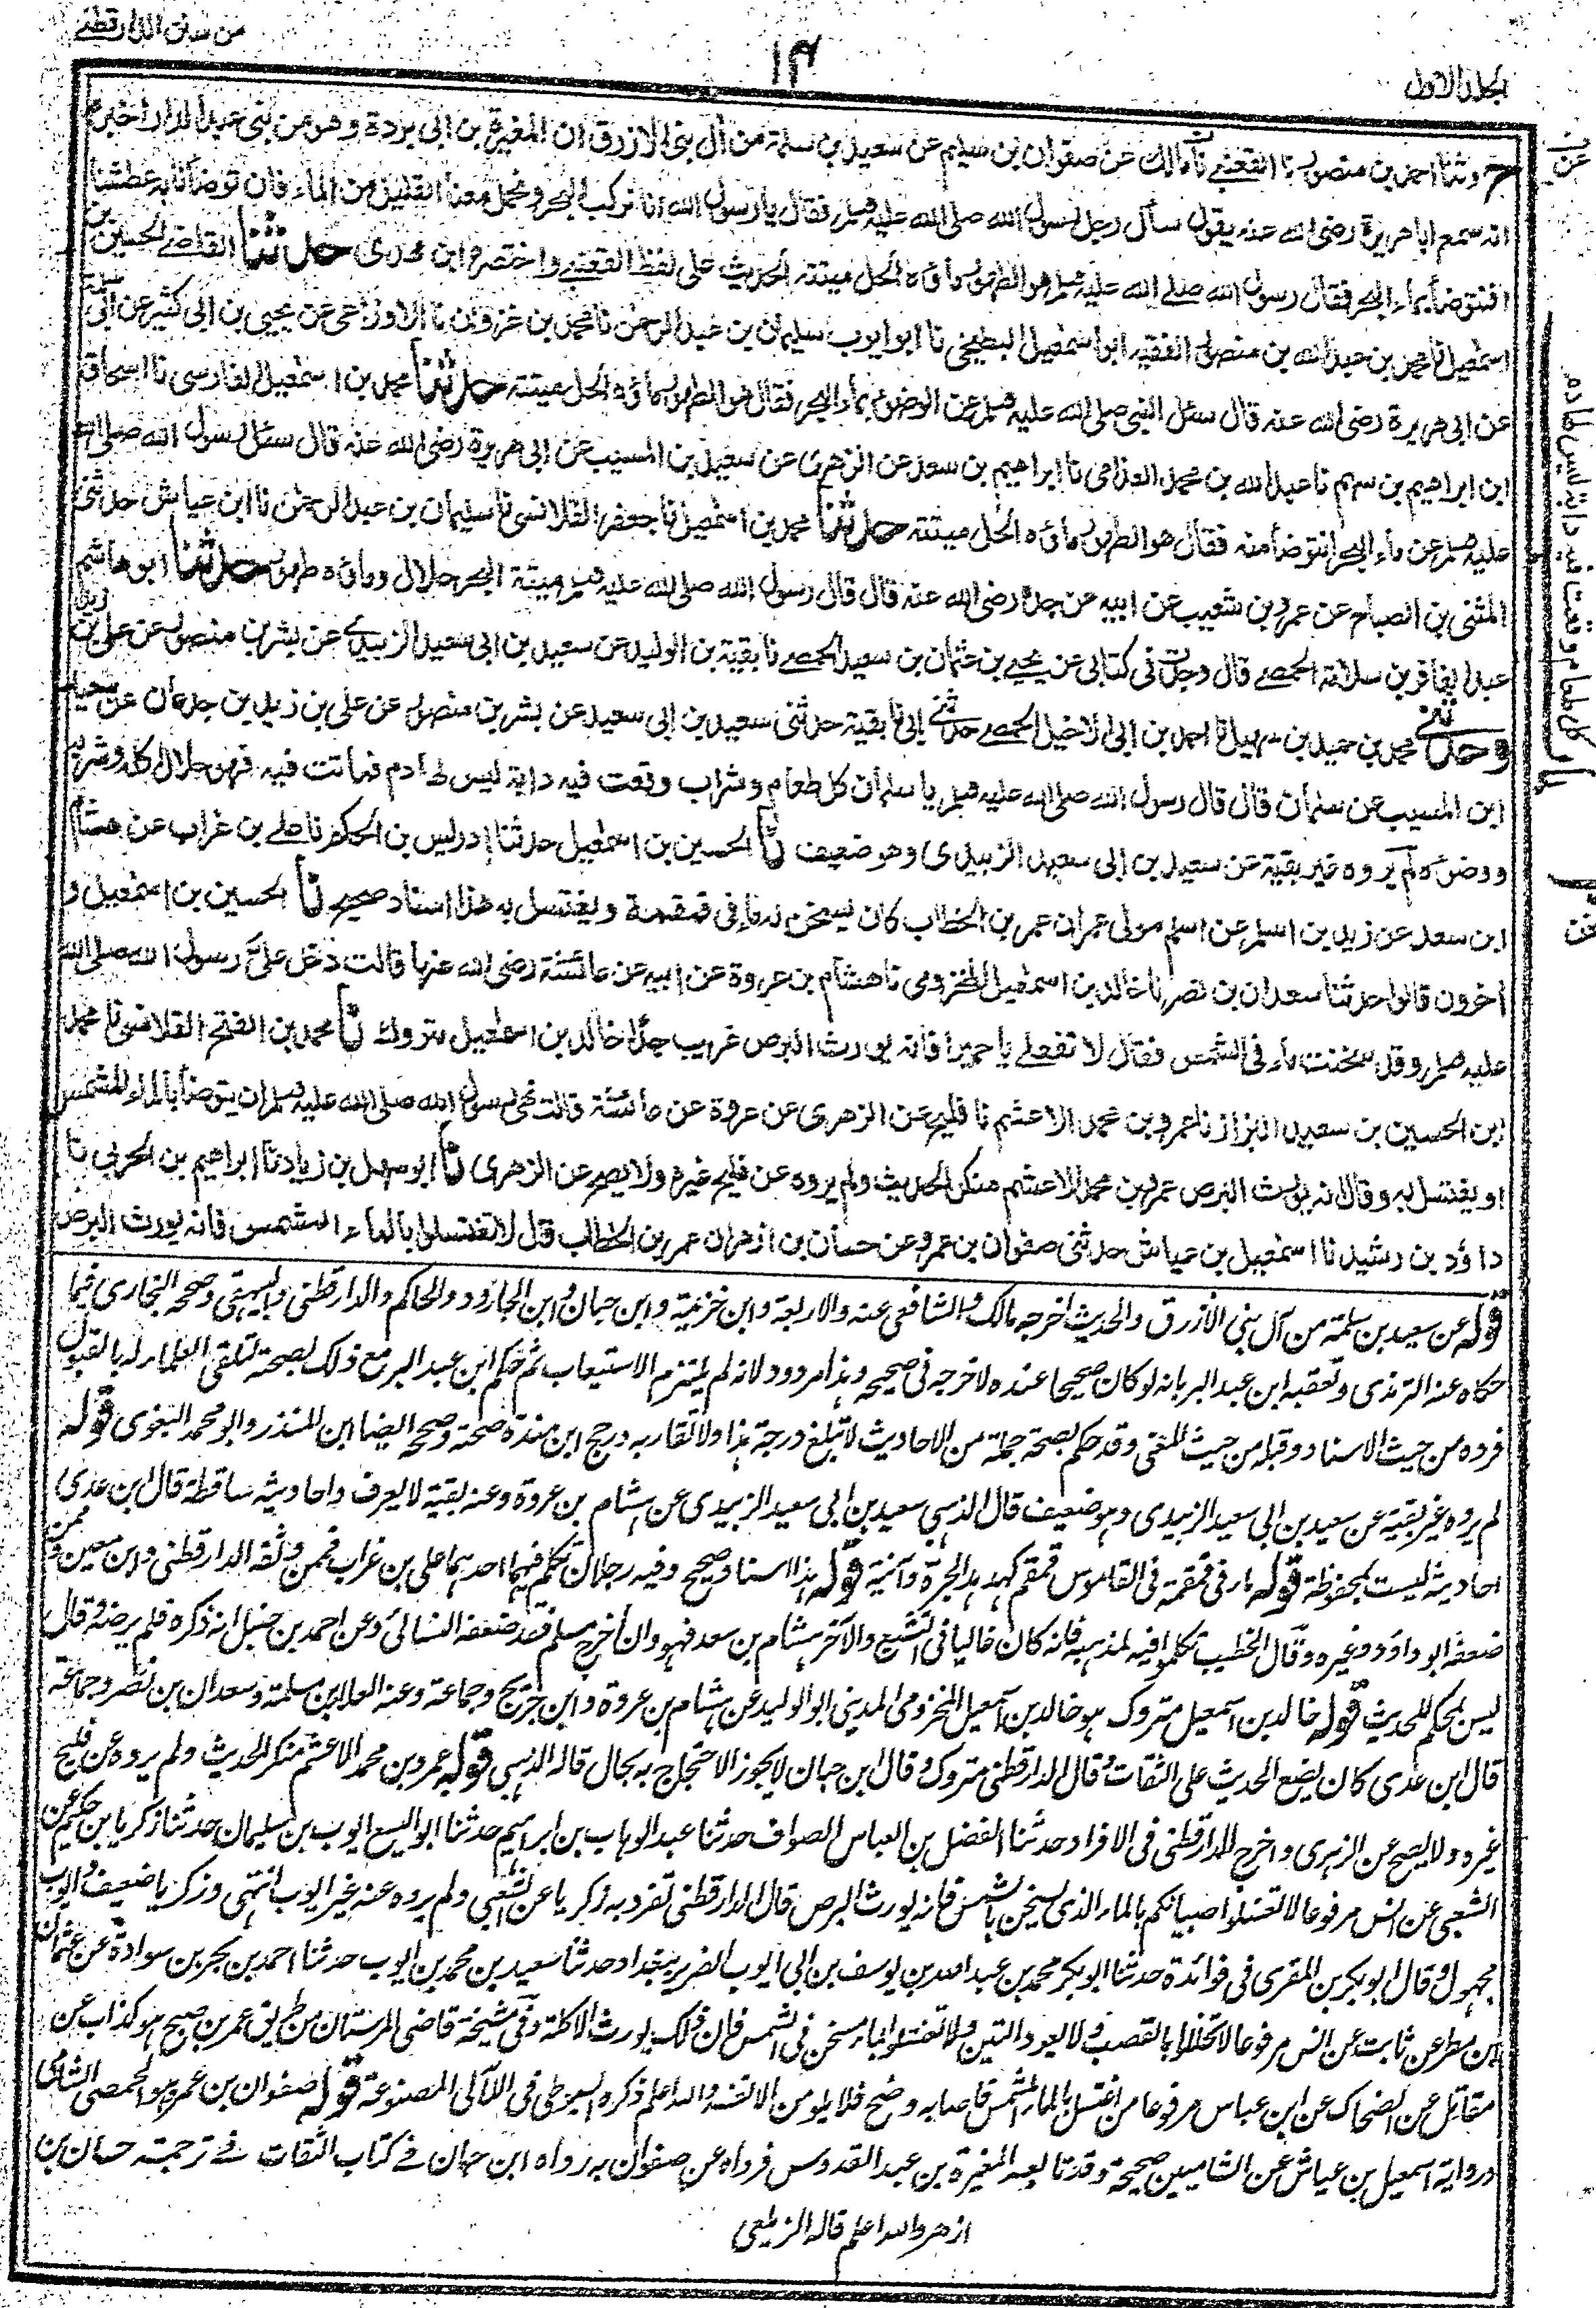 الجلد الاول
١٣
من سنن الدارقطني
ح وثنا احمد بن منصور نا القعنبي نا مالك عن صفوان بن سليم عن سعيد بن سلمة من آل بني الازرق ان المغيرة بن ابى بردة وهو من بنى عبد الدار اخبره
انه سمع ابا هريرة رضى الله عنه يقول سأل رجل رسول الله صلى الله عليه وسلم فقال يا رسول الله انا نركب البحر ونحمل معنا القليل من الماء فان توضأنا به عطشنا
افنتوضأ بماء البحر فقال رسول الله صلى الله عليه وسلم هو الطهور ماؤه الحل ميتته الحديث على لفظ القعنبي واختصره ابن مهدى حدثنا القاضي الحسين بن
اسمعيل نا محمد بن عبد الله بن منصور الفقيه ابو اسمعيل البطيخى نا ابو ايوب سليمان بن عبد الرحمن نا محمد بن غزوان نا الاوزاعى عن يحيى بن ابى كثير عن ابى سلمة
عن ابى هريرة رضى الله عنه قال سئل النبى صلى الله عليه وسلم عن الوضوء بماء البحر فقال هو الطهور ماؤه الحل ميتته حدثنا محمد بن اسمعيل الفارسى نا اسحاق
ابن ابراهيم بن سهم نا عبد الله بن محمد القدامى نا ابراهيم بن سعد عن الزهرى عن سعيد بن المسيب عن ابى هريرة رضى الله عنه قال سئل رسول الله صلى الله
عليه وسلم عن ماء البحر انتوضأ منه فقال هو الطهور ماؤه الحل ميتته حدثنا محمد بن اسمعيل نا جعفر القلانسى نا سليمان بن عبد الرحمن نا ابن عياش حدثنى
المثنى بن الصباح عن عمرو بن شعيب عن ابيه عن جده رضى الله عنه قال قال رسول الله صلى الله عليه وسلم ميتة البحر حلال وماؤه طهور حدثنا ابو هاشم
عبد الغافر بن سلامة الحمصي قال وجدت فى كتابى عن يحيى بن عثمان بن سعيد الحمصي نا بقية بن الوليد عن سعيد بن ابى سعيد الزبيدي عن بشر بن منصور عن على بن زيد
وحدثني محمد بن حميد بن سهيل نا احمد بن ابى الاخيل الحمصي حدثني ابى نا بقية حدثنى سعيد بن ابى سعيد عن بشر بن منصور عن على بن زيد بن جدعان عن سعيد
ابن المسيب عن سلمان قال قال رسول الله صلى الله عليه وسلم يا سلمان كل طعام وشراب وقعت فيه دابة ليس لها دم فماتت فيه فهو حلال اكله وشربه
ووضوءه لم يروه غير بقية عن سعيد بن ابى سعيد الزبيدى وهو ضعيف نا الحسين بن اسمعيل حدثنا ادريس بن الحكم نا على بن غراب عن هشام
ابن سعد عن زيد بن اسلم عن اسلم مولى عمر ان عمر بن الخطاب كان يسخن له ماء فى قمقمة ويغتسل به هذا اسناد صحيح نا الحسين بن اسمعيل و
آخرون قالوا حدثنا سعدان بن نصر نا خالد بن اسمعيل المخزومى نا هشام بن عروة عن ابيه عن عائشة رضى الله عنها قالت دخل على رسول الله صلى الله
عليه وسلم وقد سخنت ماء فى الشمس فقال لا تفعلى يا حميرا فانه يورث البرص غريب جدا خالد بن اسمعيل متروك نا محمد بن الفتح القلانسى نا محمد
ابن الحسين بن سعيد البزاز نا عمرو بن محمد الاعشم نا فليح عن الزهرى عن عروة عن عائشة قالت نهى رسول الله صلى الله عليه وسلم ان يتوضأ بالماء المشمس
او يغتسل به وقال انه يورث البرص عمرو بن محمد الاعشم منكر الحديث ولم يروه عن فليح غيره ولا يصح عن الزهرى نا ابو سهل بن زياد نا ابراهيم بن الحربى نا
داؤد بن رشيد نا اسمعيل بن عياش حدثنى صفوان بن عمرو عن حسان بن ازهر ان عمر بن الخطاب قال لا تغتسلوا بالماء المشمس فانه يورث البرص
قوله عن سعيد بن سلمة من آل بنى الأزرق والحديث اخرجه مالك والشافعى عنه والاربعة وابن خزيمة وابن حبان وابن الجارود والحاكم والدارقطنى والبيهقى وصححه البخارى فيما
حكاه عنه الترمذى وتعقبه ابن عبد البر بانه لو كان صحيحا عنده لاخرجه فى صحيحه وهذا مردود لانه لم يلتزم الاستيعاب ثم حكم ابن عبد البر مع ذلك بصحته لتلقى العلماء له بالقبول
فرده من حيث الاسناد وقبله من حيث المعنى وقد حكم بصحة جملة من الاحاديث لا تبلغ درجة هذا ولا تقاربه ورجح ابن مندة صحته وصححه ايضا ابن المنذر وابو محمد البغوى قوله
لم يروه غير بقية عن سعيد بن ابى سعيد الزبيدى وهو ضعيف قال الذهبى سعيد بن ابى سعيد الزبيدى عن هشام بن عروة وعنه بقية لا يعرف واحاديثه ساقطة قال ابن عدى
احاديثه ليست بمحفوظة قوله ماء فى قمقمة فى القاموس قمقم كهدهد الجرة وآنية قوله هذا اسناد صحيح وفيه رجلان تكلم فيهما احدهما على بن غراب فممن وثقه الدارقطنى وابن معين وممن
ضعفه ابو داؤد وغيره وقال الخطيب تكلموا فيه لمذهبه فانه كان غاليا فى التشيع والآخر هشام بن سعد فهو وان أخرج مسلم فقد ضعفه النسائى وعن احمد بن حنبل انه ذكره فلم يرضه وقال
ليس بمحكم للحديث قوله خالد بن اسمعيل متروك هو خالد بن اسمعيل المخزومى المدينى ابو الوليد عن هشام بن عروة وابن جريج وجماعة وعنه العلاء بن مسلمة وسعدان بن نصر وجماعة
قال ابن عدى كان يضع الحديث على الثقات وقال الدارقطنى متروك وقال ابن حبان لا يجوز الاحتجاج به بحال قاله الذهبى قوله عمرو بن محمد الاعشم منكر الحديث ولم يروه عن فليح
غيره ولا يصح عن الزهرى واخرج الدارقطنى فى الافراد حدثنا الفضل بن العباس الصواف حدثنا عبد الوهاب بن ابراهيم حدثنا ابو اليسع ايوب بن سليمان حدثنا زكريا بن حكيم عن
الشعبى عن انس مرفوعا لا تغسلوا صبيانكم بالماء الذى يسخن بالشمس فانه يورث البرص قال الدارقطنى تفرد به زكريا عن الشعبى ولم يروه عنه غير ايوب انتهى وزكريا ضعيف وايوب
مجهول وقال ابو بكر بن المقرى فى فوائدة حدثنا ابو بكر محمد بن عبد الله بن يوسف بن ابى ايوب الضرير ببغداد حدثنا سعيد بن محمد بن ايوب حدثنا احمد بن بحر بن سوادة عن عثمان
ابن مطر عن ثابت عن انس مرفوعا لا تخللوا بالقصب ولا بعود التين ولا تغتسلوا بماء مسخن فى الشمس فان ذلك يورث الاكلة وفى مشيخة قاضى المرستان من طريق عمر بن صبح هو كذاب عن
مقاتل عن الضحاك عن ابن عباس مرفوعا من اغتسل بالماء المشمس فاصابه وضح فلا يلومن الا نفسه والله اعلم ذكره السيوطى فى اللآلى المصنوعة قوله صفوان بن عمرو هو الحمصى الشامى
ورواية اسمعيل بن عياش عن الشاميين صحيحة وقد تابعه المغيرة بن عبد القدوس فرواه عن صفوان به رواه ابن حبان فى كتاب الثقات فى ترجمة حسان بن
ازهر والله اعلم قاله الزيلعى